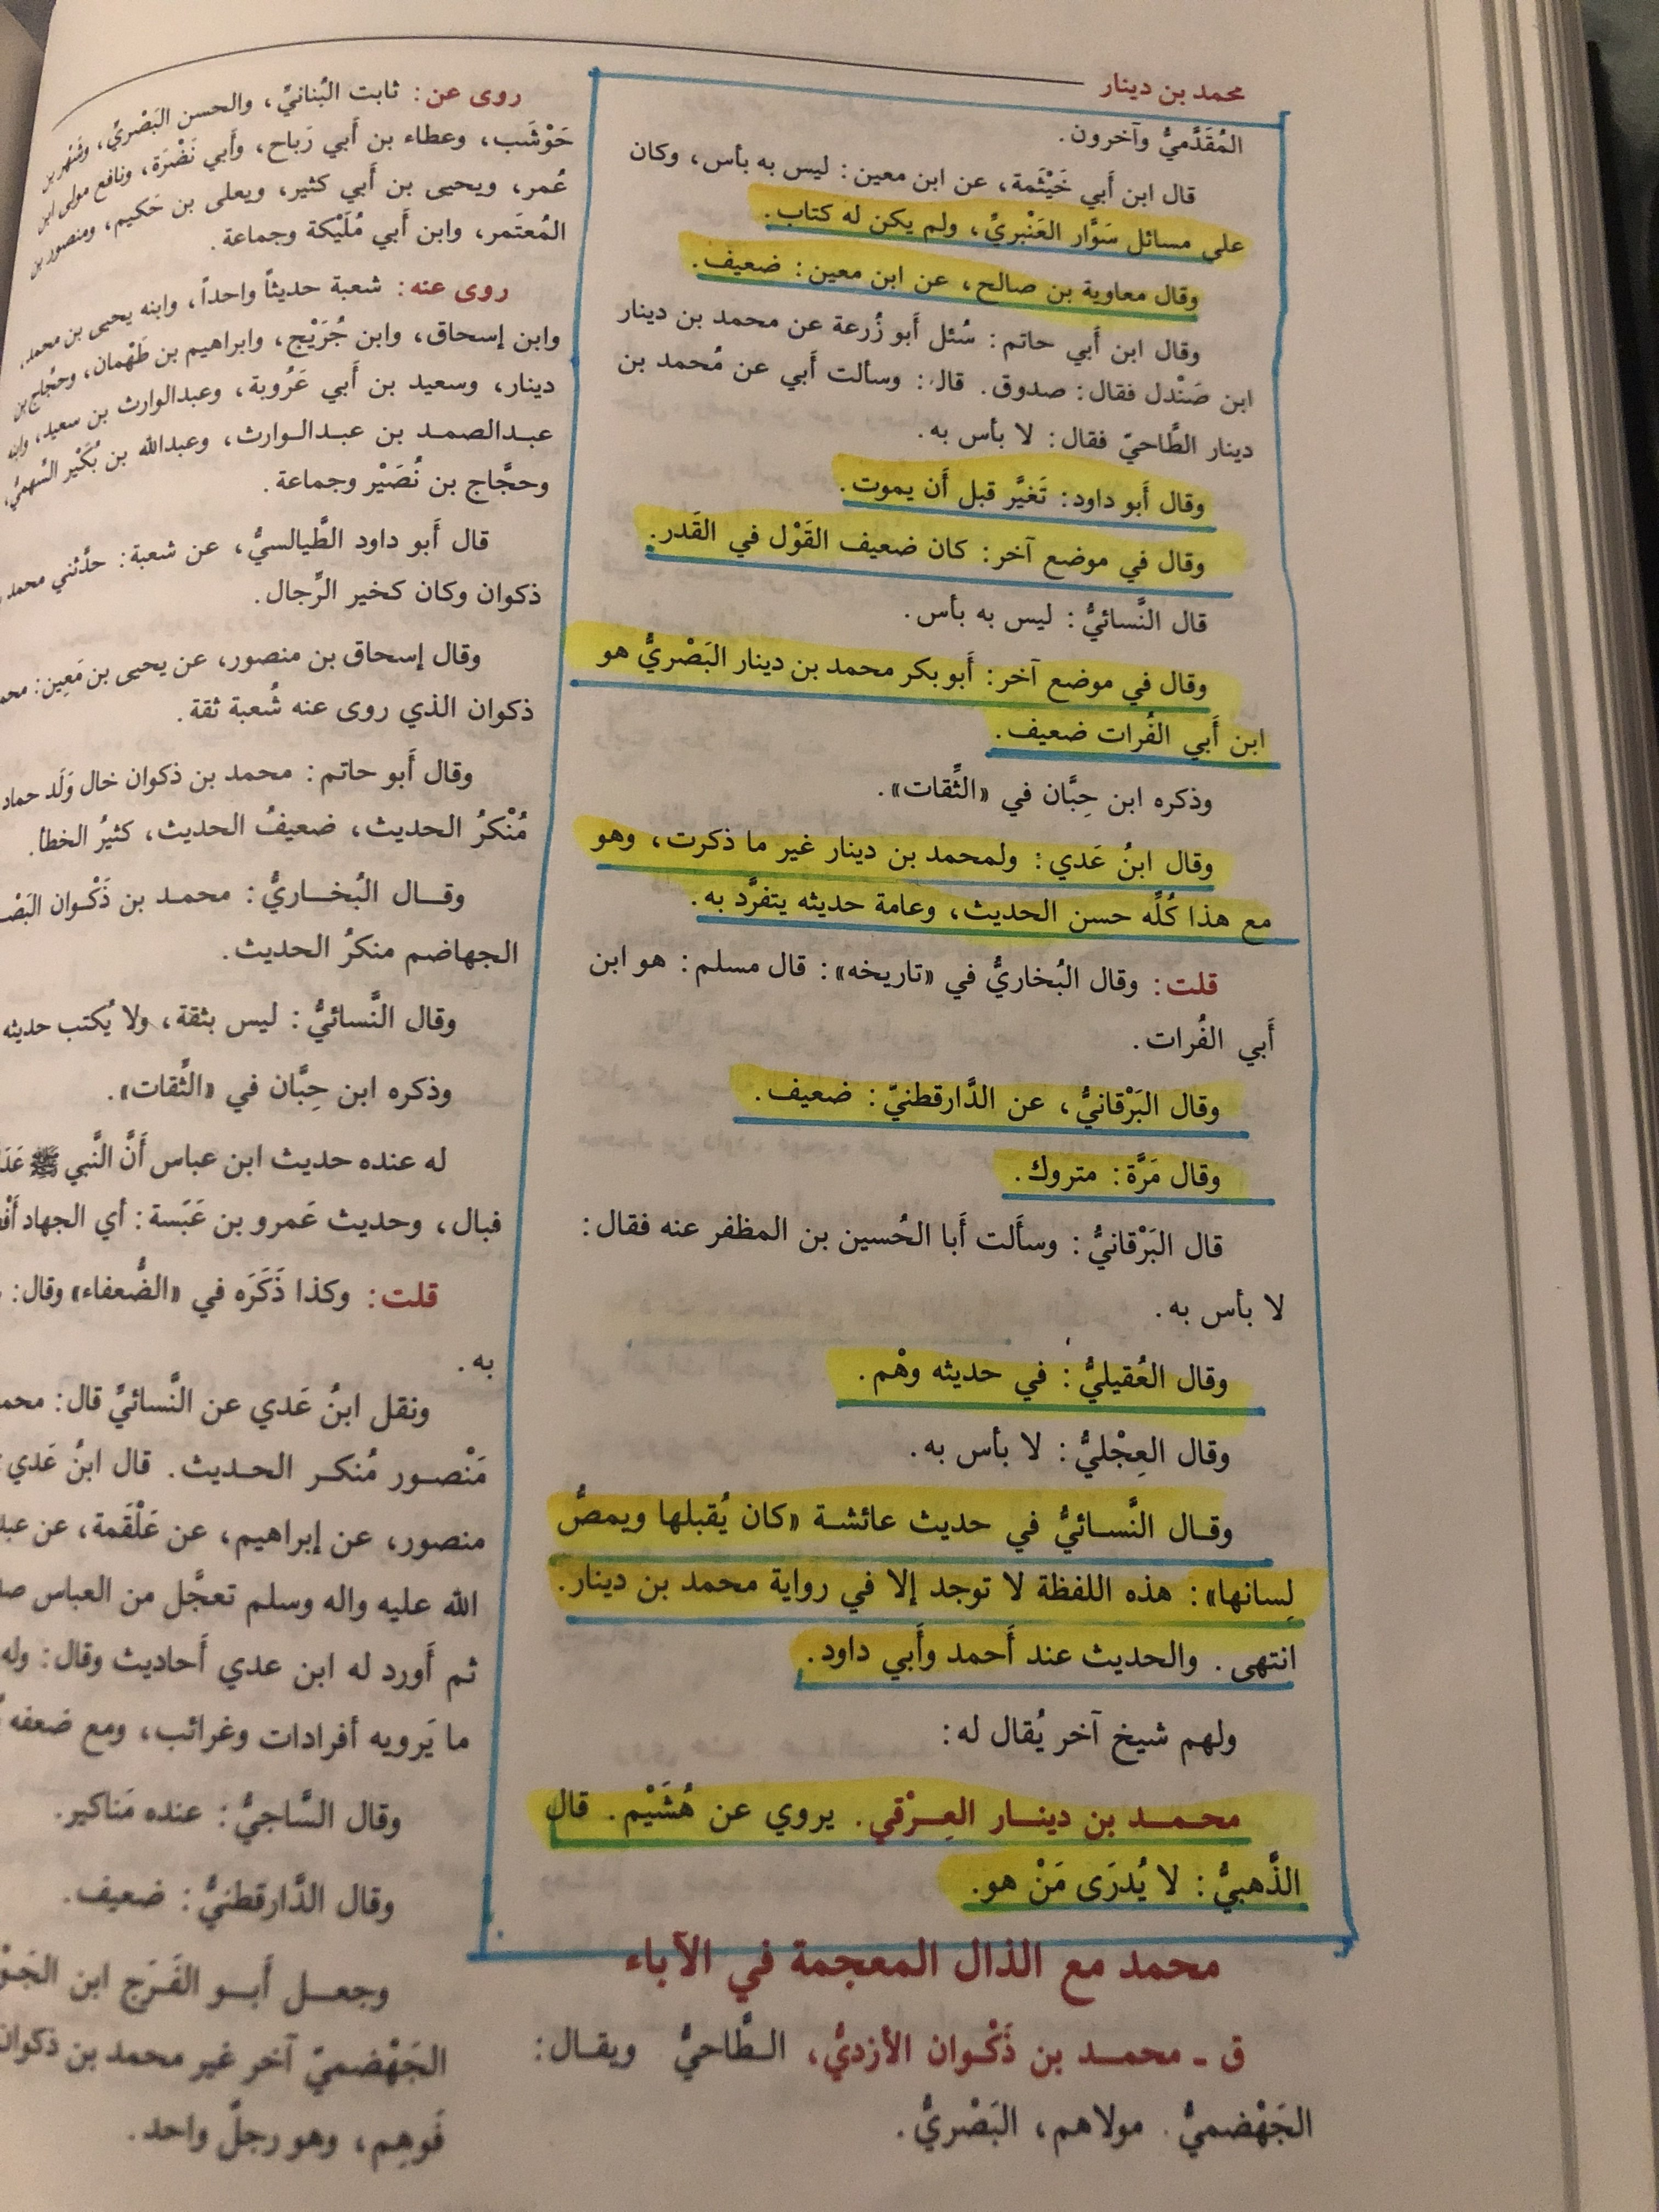 محمد بن دينار
المُقَدَّميُّ وآخرون.
قال ابن أَبي خَيْثَمة، عن ابن معين: ليس به بأس، وكان
على مسائل سَوَّار العَنْبريِّ، ولم يكن له كتاب.
وقال معاوية بن صالح، عن ابن معين: ضعيف.
وقال ابن أَبي حاتم: سُئل أَبو زُرعة عن محمد بن دينار
ابن صَنْدل فقال: صدوق. قال: وسألت أَبي عن مُحمد بن
دينار الطَّاحيّ فقال: لا بأس به.
وقال أَبو داود: تَغيَّر قبل أَن يموت.
وقال في موضع آخر: كان ضعيف القَوْل في القَدر.
قال النَّسائيُّ: ليس به بأس.
وقال في موضع آخر: أَبو بكر محمد بن دينار البَصْريُّ هو
ابن أَبي الفُرات ضعيف.
وذكره ابن حِبَّان في «الثِّقات».
وقال ابنُ عَدي: ولمحمد بن دينار غير ما ذكرت، وهو
مع هذا كُلِّه حسن الحديث، وعامة حديثه يتفرَّد به.
قلت: وقال البُخاريُّ في «تاريخه»: قال مسلم: هو ابن
أَبي الفُرات.
وقال البَرْقانيُّ، عن الدَّارقطنيّ: ضعيف.
وقال مَرَّة: متروك.
قال البَرْقانيُّ: وسأَلت أَبا الحُسين بن المظفر عنه فقال:
لا بأس به.
وقال العُقيليُّ: في حديثه وهْم.
وقال العِجْليُّ: لا بأس به.
وقال النَّسائيُّ في حديث عائشة «كان يُقبلها ويمصُّ
لِسانها»: هذه اللفظة لا توجد إلا في رواية محمد بن دينار.
انتهى. والحديث عند أَحمد وأَبي داود.
ولهم شيخ آخر يُقال له:
محمد بن دينار العِرْقي. يروي عن هُشَيْم. قال
الذَّهبيُّ: لا يُدرَى مَنْ هو.
محمد مع الذال المعجمة في الآباء
ق ـ محمد بن ذَكْوان الأزديُّ، الطَّاحيُّ ويقال:
الجَهْضميُّ. مولاهم، البَصْريُّ.
روى عن: ثابت البُنانيِّ، والحسن البَصْريِّ، وشَهْر بن
حَوْشَب، وعطاء بن أَبي رَباح، وأَبي نَضْرَة، ونافع مولى ابن
عُمر، ويحيى بن أَبي كثير، ويعلى بن حَكيم، ومنصور بن
المُعتَمر، وابن أَبي مُلَيْكة وجماعة.
روى عنه: شعبة حديثاً واحداً، وابنه يحيى بن محمد،
وابن إسحاق، وابن جُرَيْج، وابراهيم بن طَهْمان، وحجَّاج بن
دينار، وسعيد بن أَبي عَرُوبة، وعبدالوارث بن سعيد، وابنه
عبدالصمد بن عبدالوارث، وعبدالله بن بُكَيْر السَّهميُّ،
وحجَّاج بن نُصَيْر وجماعة.
قال أَبو داود الطَّيالسيُّ، عن شعبة: حدَّثني محمد
ذكوان وكان كخير الرِّجال.
وقال إسحاق بن منصور، عن يحيى بن مَعِين:
ذكوان الذي روى عنه شُعبة ثقة.
وقال أَبو حاتم: محمد بن ذكوان خال وَلَد حماد
مُنْكرُ الحديث، ضعيفُ الحديث، كثيرُ الخطأ.
وقال البُخاريُّ: محمد بن ذَكْوان
الجهاضم منكرُ الحديث.
وقال النَّسائيُّ: ليس بثقة، ولا يُكتب حديثه
وذكره ابن حِبَّان في «الثِّقات».
له عنده حديث ابن عباس أَنَّ النَّبي ﷺ
فبال، وحديث عَمرو بن عَبَسة: أي الجهاد
قلت: وكذا ذَكَرَه في «الضُّعفاء» وقال:
به.
ونقل ابنُ عَدي عن النَّسائيِّ قال:
مَنْصور مُنكر الحديث. قال ابنُ عَدي
منصور، عن إبراهيم، عن عَلْقَمة، عن
الله عليه واله وسلم تعجَّل من العباس
ثم أَورد له ابن عدي أَحاديث وقال: وله
ما يَرويه أفرادات وغرائب، ومع ضعفه
وقال السَّاجيُّ: عنده مَناكير.
وقال الدَّارقطنيُّ: ضعيف.
وجعل أَبو الفَرَج ابن
الجَهْضميّ آخر غير محمد بن ذكوان
فَوهِم، وهو رجلٌ واحد.